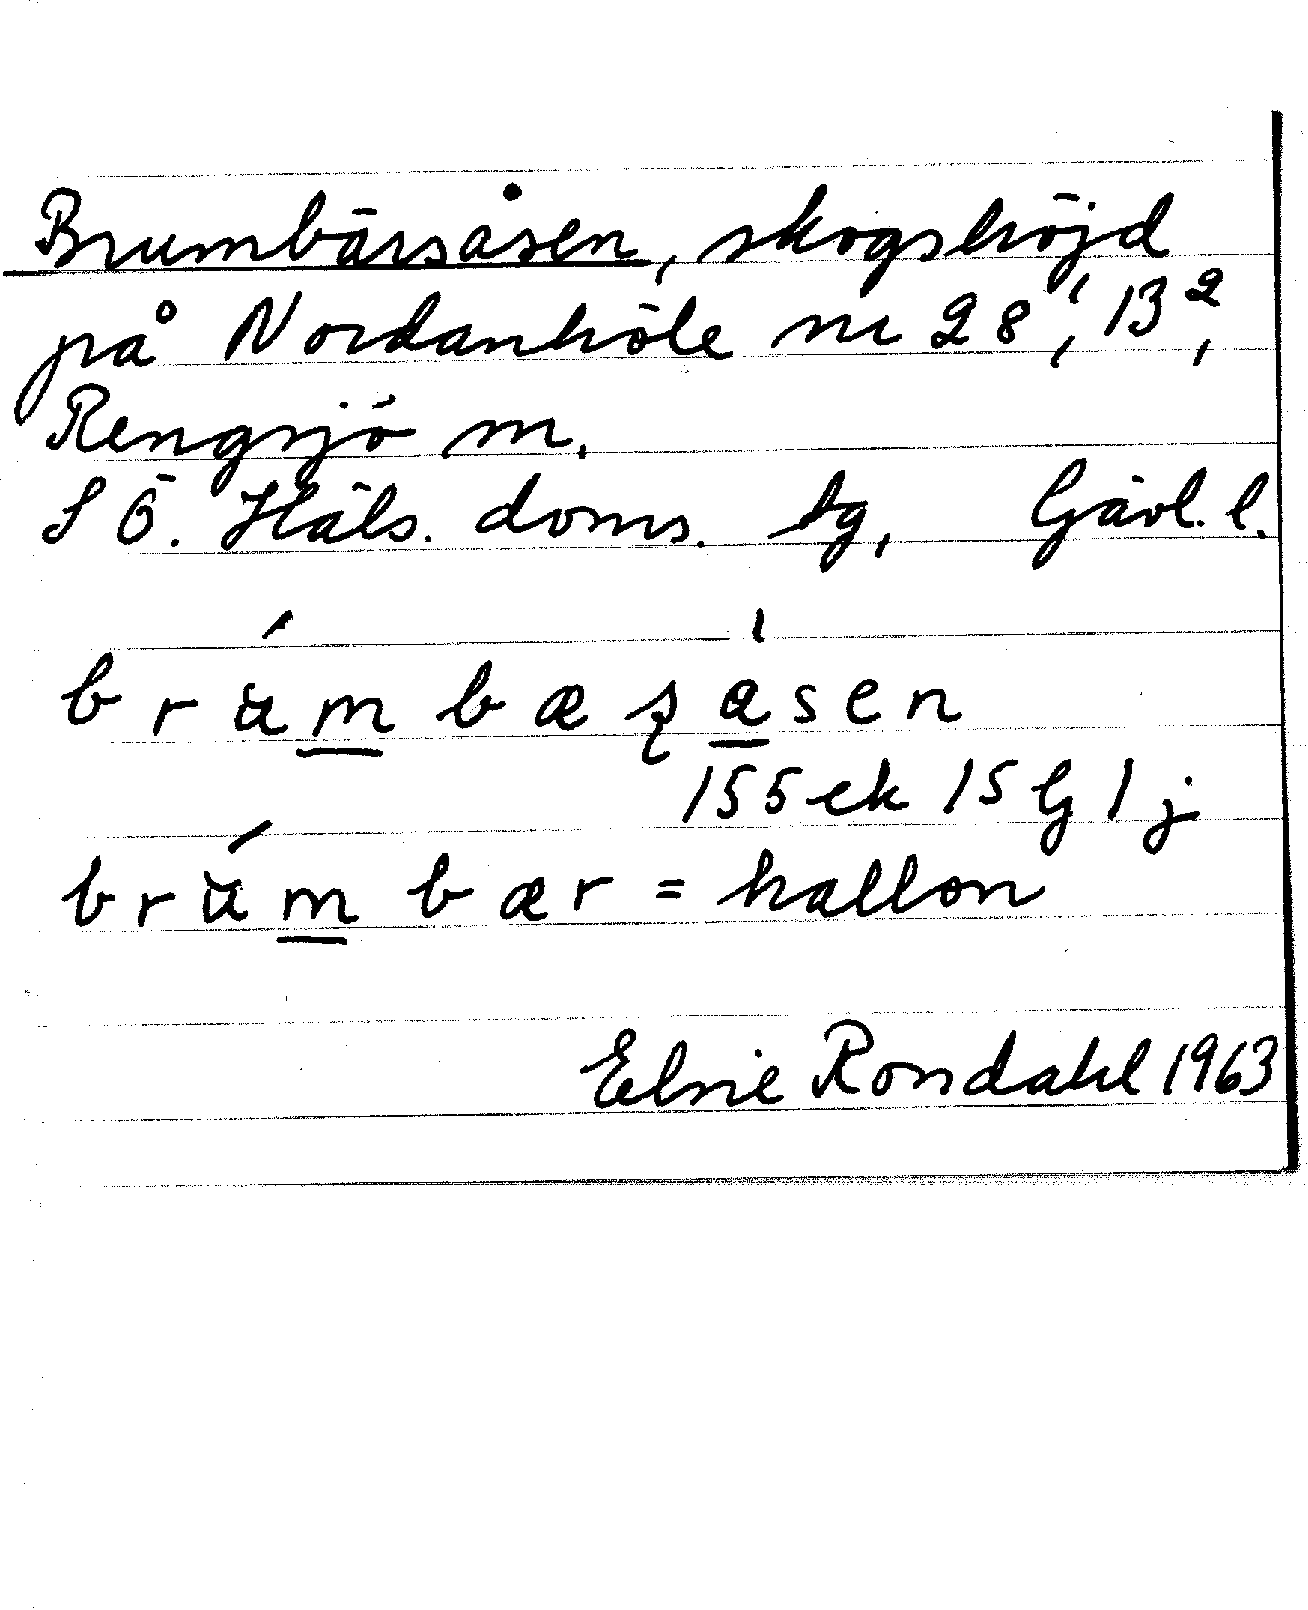 Brumbärsåsen, skogshöjd
på Nordanhöle nr 28¹, 13²,
Rengsjö sn.
S Ö. Häls. doms. tg, Gävl. l.
brumbæʂåsen
155 ek 15 G 1 j
brumbær = hallon
Elsie Rondahl 1963